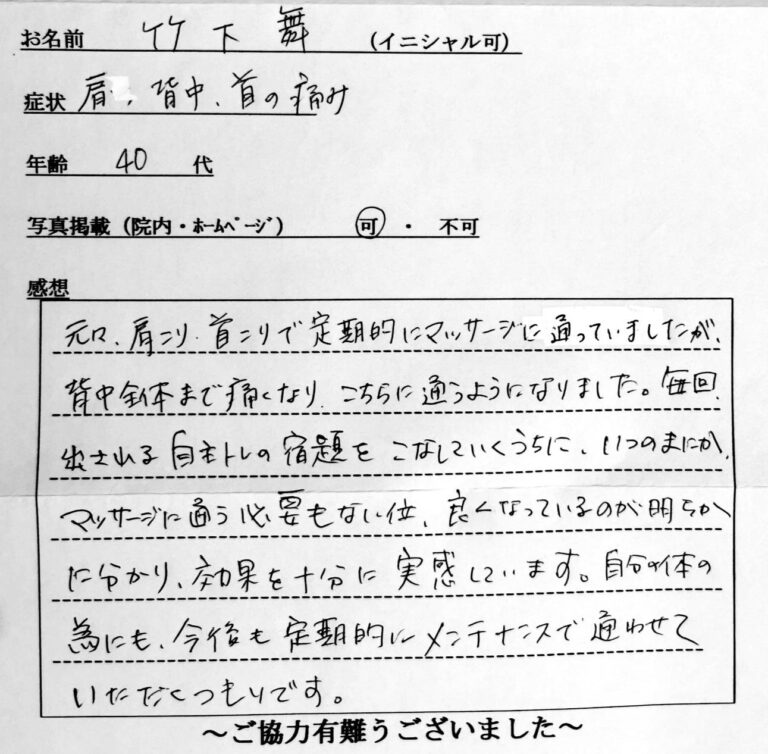 お名前 竹下 舞 (イニシャル可)
症状 肩、背中、首の痛み
年齢 40 代
写真掲載(院内・ホームページ) 可 ・ 不可
感想
元々、肩こり、首こりで定期的にマッサージに通っていましたが、
背中全体まで痛くなり、こちらに通うようになりました。毎回、
出される自主トレの宿題をこなしていくうちに、いつのまにか、
マッサージに通う必要もない位、良くなっているのが明らか
に分かり、効果を十分に実感しています。自分の体の
為にも、今後も定期的にメンテナンスで通わせて
いただくつもりです。
～ご協力有難うございました～